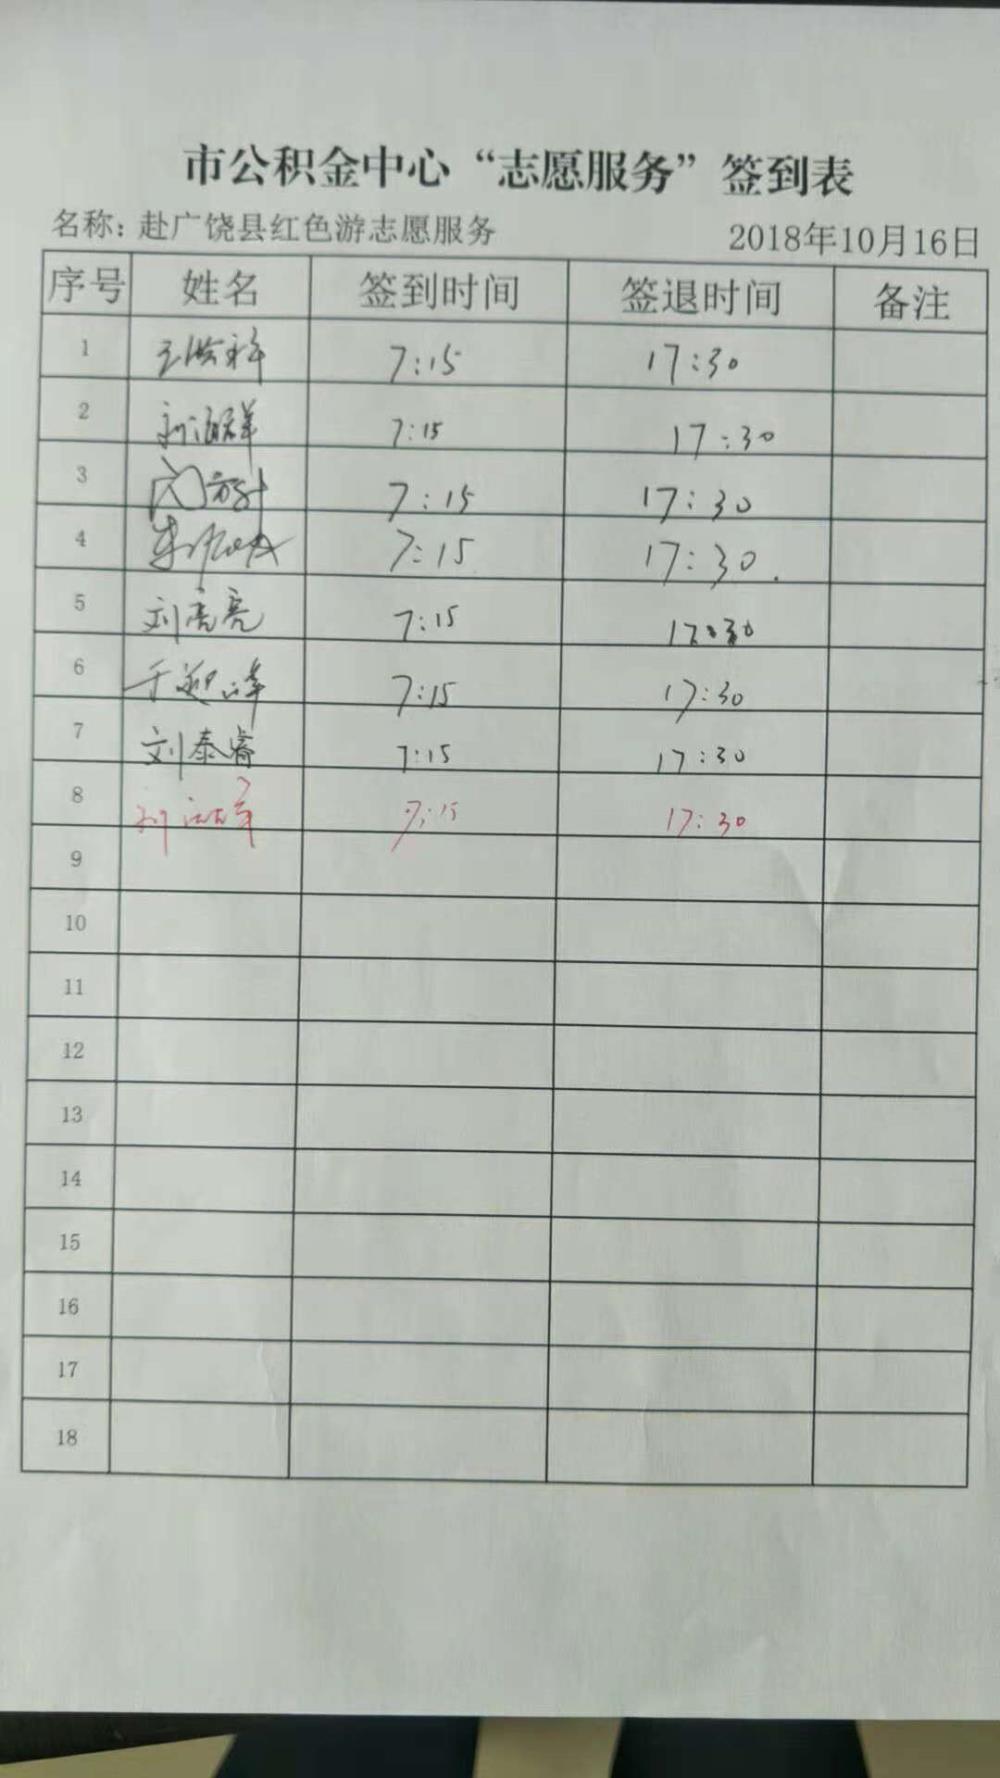 市公积金中心“志愿服务”签到表
名称：赴广饶县红色游志愿服务 2018年10月16日
序号 姓名 签到时间 签退时间 备注
1 7:15 17:30
2 7:15 17:30
3 7:15 17:30
4 7:15 17:30.
5 刘亮亮 7:15 17:30
6 7:15 17:30
7 刘泰睿 7:15 17:30
8 7:15 17:30
9
10
11
12
13
14
15
16
17
18